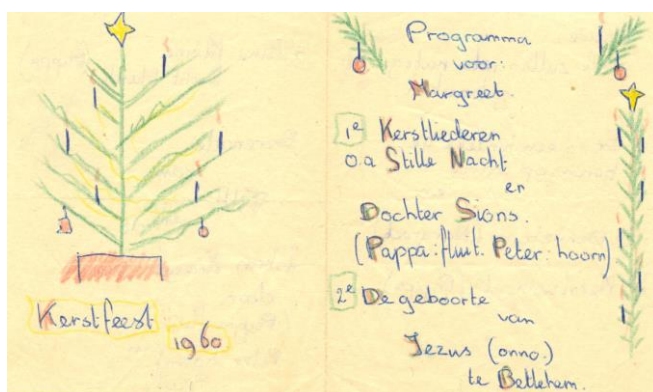 Kerstfeest
1960
Programma
voor:
Margreet.
1e Kerstliederen
o.a Stille Nacht
en
Dochter Sions.
(Pappa: fluit. Peter: hoorn)
2e De geboorte
van
Jezus (onno.)
te Betlehem.